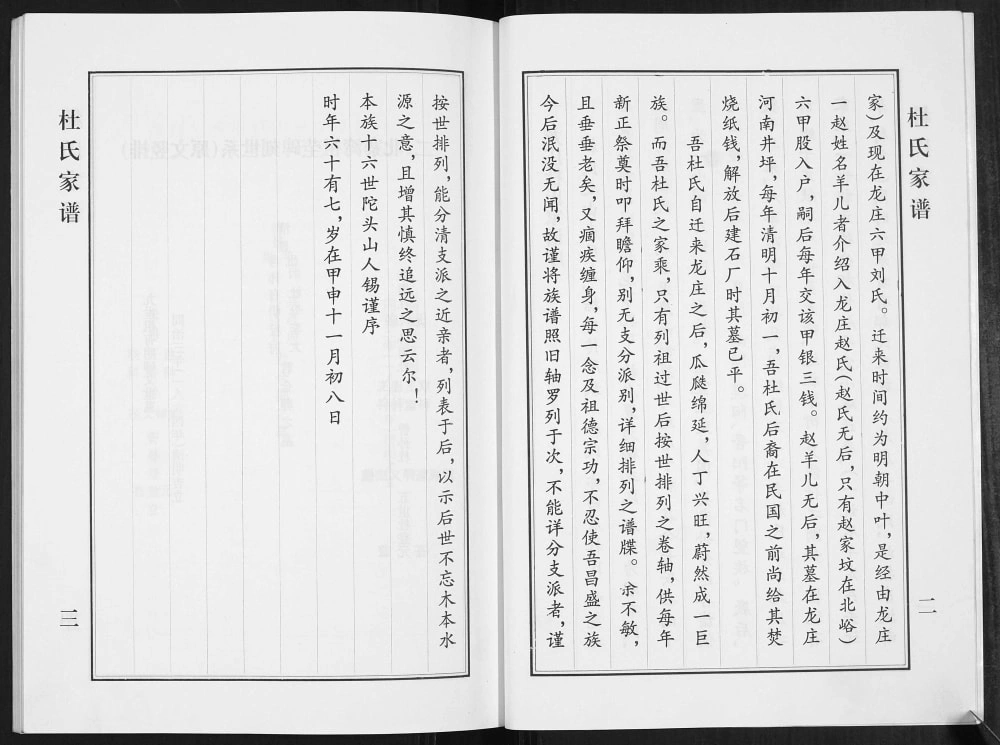 杜氏家谱
家)及现在龙庄六甲刘氏。迁来时间约为明朝中叶,是经由龙庄
一赵姓名羊儿者介绍入龙庄赵氏(赵氏无后,只有赵家坟在北峪)
六甲股入户,嗣后每年交该甲银三钱。赵羊儿无后,其墓在龙庄
河南井坪,每年清明十月初一,吾杜氏后裔在民国之前尚给其焚
烧纸钱,解放后建石厂时其墓已平。
吾杜氏自迁来龙庄之后,瓜瓞绵延,人丁兴旺,蔚然成一巨
族。而吾杜氏之家乘,只有列祖过世后按世排列之卷轴,供每年
新正祭奠时叩拜瞻仰,别无支分派别,详细排列之谱牒。余不敏,
且垂垂老矣,又痼疾缠身,每一念及祖德宗功,不忍使吾昌盛之族
今后泯没无闻,故谨将族谱照旧轴罗列于次,不能详分支派者,谨
二
杜氏家谱
按世排列,能分清支派之近亲者,列表于后,以示后世不忘木本水
源之意,且增其慎终追远之思云尔!
本族十六世陀头山人锡谨序
时年六十有七,岁在甲申十一月初八日
三